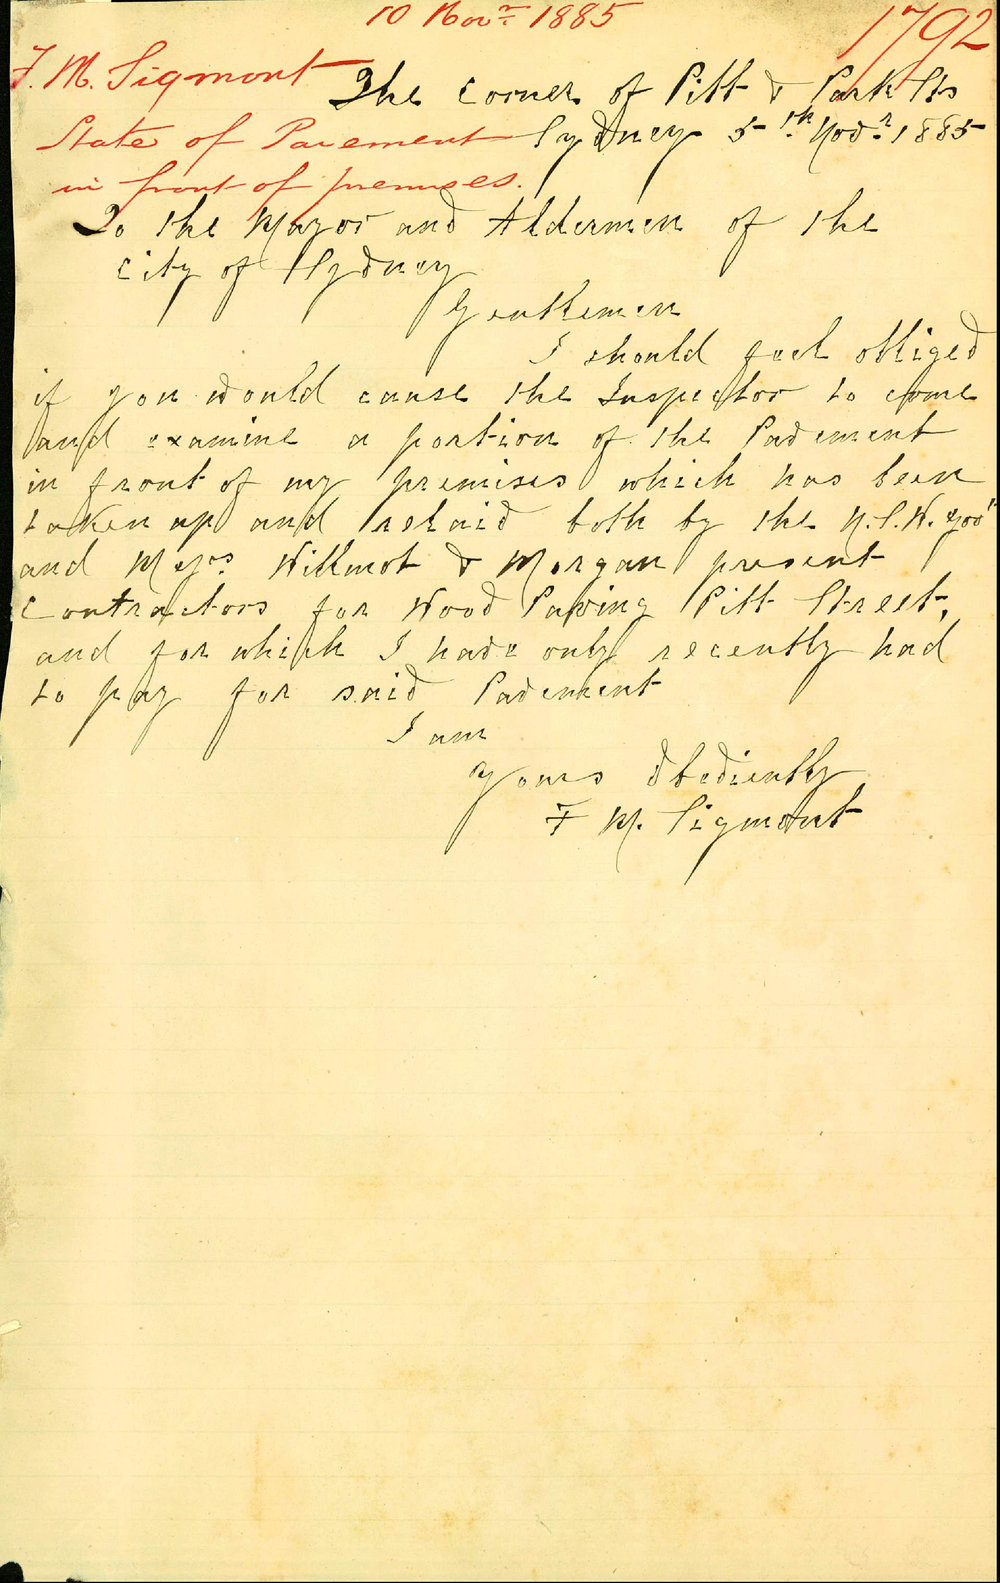 10 Novr 1885
1792
F. M. Sigmont
State of Pavement
in front of premises.
The Corner of Pitt & Park Sts
Sydney 5th Novr 1885
To the Mayor and Aldermen of the
City of Sydney
Gentlemen
I should feel obliged
if you would cause the Inspector to come
and examine a portion of the Pavement
in front of my premises which has been
taken up and relaid both by the N.S.W. Govt
and Messrs Willmot & Morgan present
Contractors for Wood Paving Pitt Street,
and for which I have only recently had
to pay for said Pavement
I am
Yours Obediently
F M. Sigmont